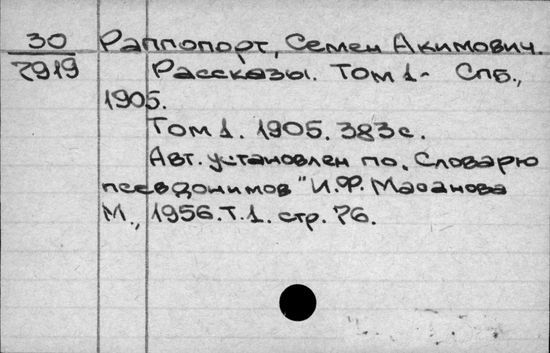 30 Раппопорт, Семен Акимович.
7919 Рассказы. Том 1- Спб.,
1905.
Том 1. 1905. 383 с.
Авт. установлен по. Словарю
псевдонимов "И.Ф. Масанова
М., 1956. Т. 1. стр. 76.